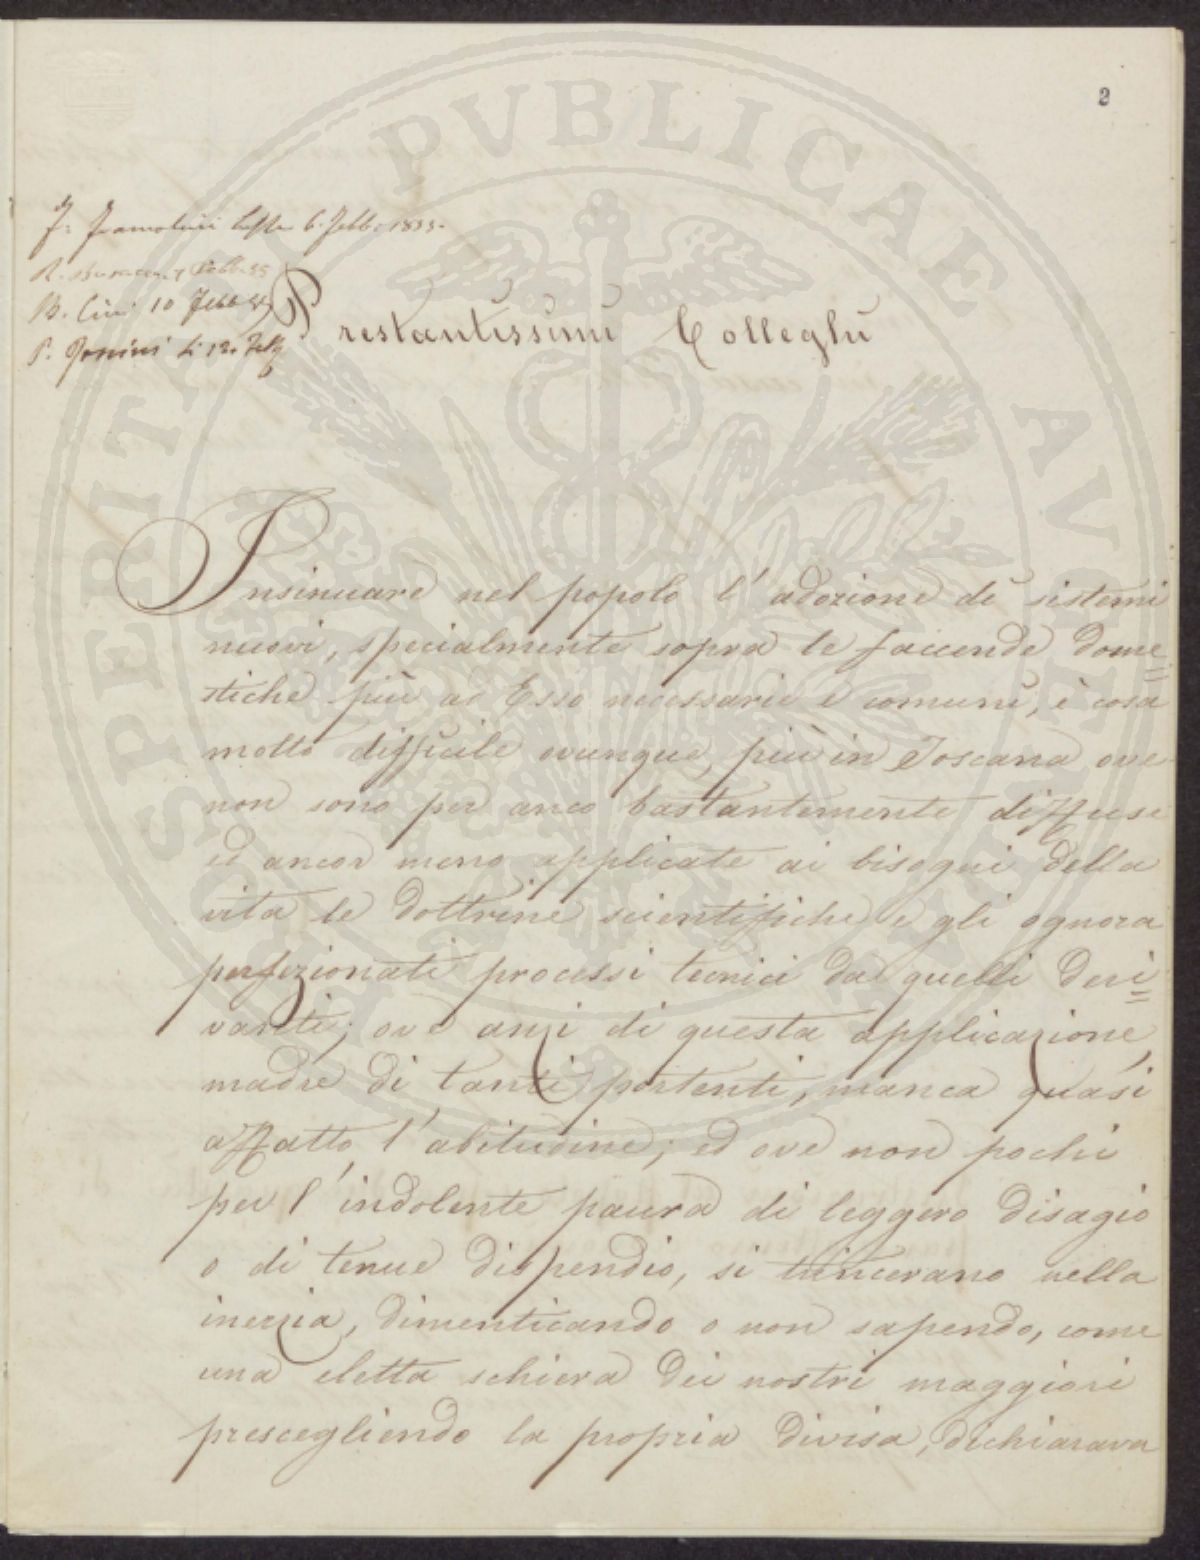 2
6. Febb. 1855.
R. Febb. 55
B. Cini 10 Febb 55
P. li 12. Febb
Prestantissimi Colleghi
Insinuare nel popolo l'adozione di sistemi
nuovi, specialmente sopra le faccende dome=
stiche più ad Esso necessarie e comuni, è cosa
molto difficile ovunque, più in Toscana ove
non sono per anco bastantemente diffuse
ed ancor meno applicate ai bisogni della
vita le dottrine scientifiche e gli ognora
perfezionati processi tecnici da quelli deri=
vanti; ove anzi di questa applicazione,
madre di tanti portenti, manca quasi
affatto l'abitudine; ed ove non pochi
per l'indolente paura di leggero disagio
o di tenue dispendio, si trincerano nella
inerzia, dimenticando o non sapendo, come
una eletta schiera dei nostri maggiori
prescegliendo la propria divisa, dichiarava
PROSPERITATI PVBLICAE AVGENDAE